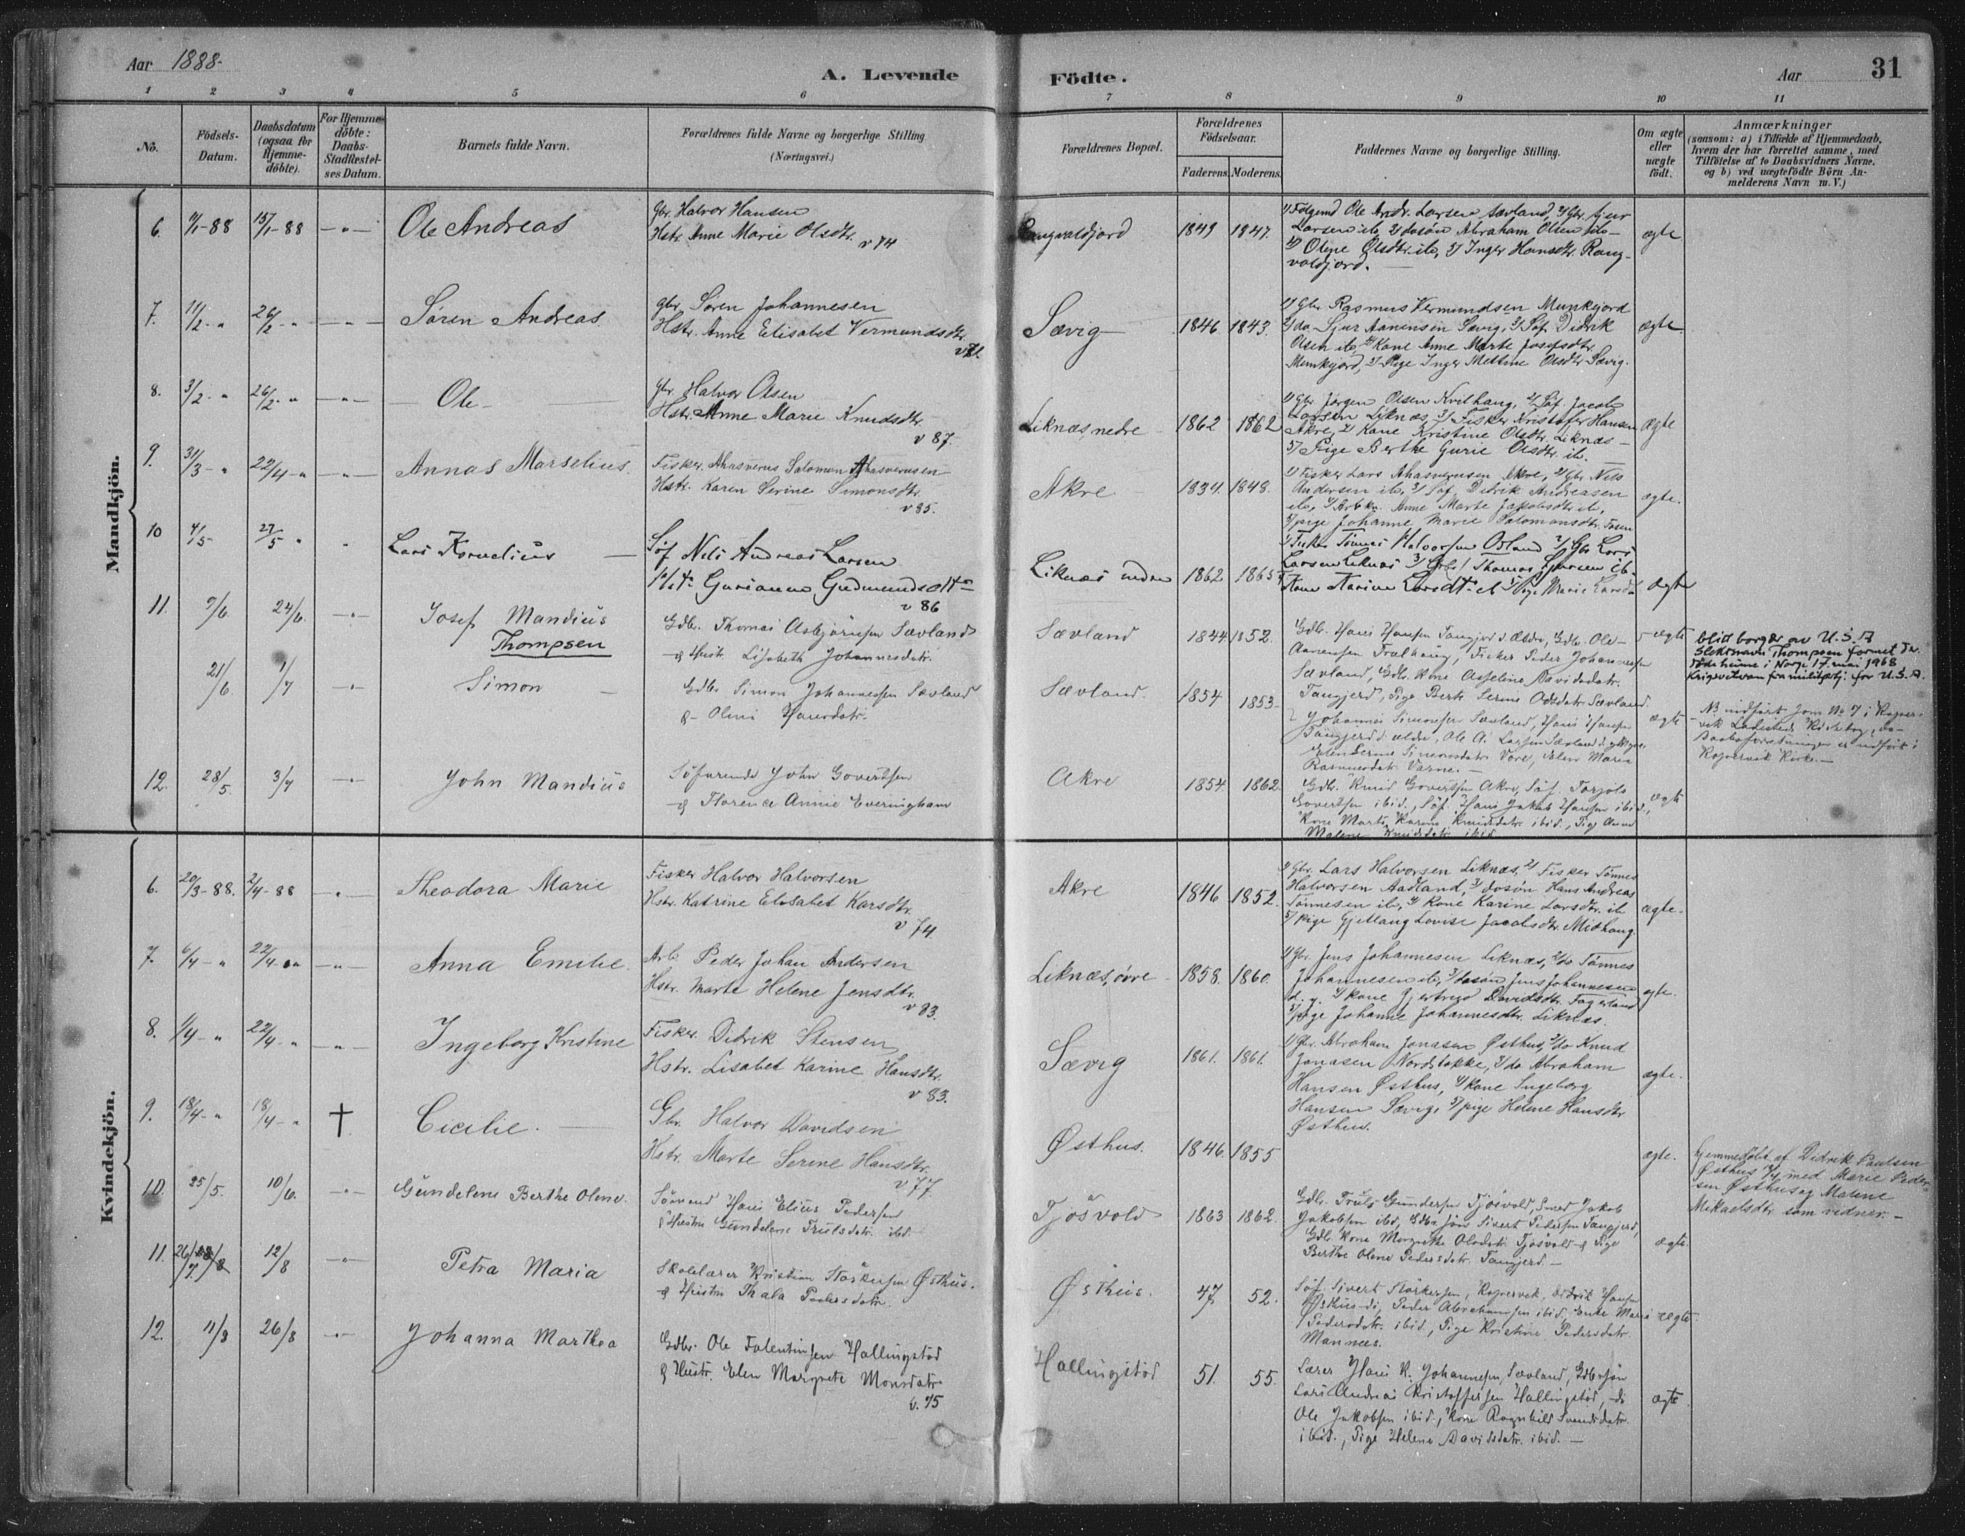 Aar 1888.
A. Levende Födte.
Aar
31
1 2 3 4 5 6 7 8 9 10 11
No.
Födsels-
Datum.
Daabsdatum
(ogsaa for
Hjemme-
döbte).
For Hjemme-
döbte:
Daabs-
Stadfæstel-
ses Datum.
Barnets fulde Navn.
Forældrenes fulde Navne og borgerlige Stilling
(Næringsvei.)
Forældrenes Bopæl.
Forældrenes
Födselsaar.
Faderens. Moderens.
Faddernes Navne og borgerlige Stilling.
Om ægte
eller
uægte
födt.
Anmærkninger
(saasom: a) i Tilfælde af Hjemmedaab,
hvem der har forrettet samme, med
Tilföielse af to Daabsvidners Navne.
og b) ved uægtefödte Börn An-
melderens Navn m. V.)
Mandkjön.
6. 11/1-88 15/1-88 Ole Andreas
Gbr. Halvor Hansen
Hstr. Anne Marie Olsdtr. v 74
Rangvaldjord 1849 1847.
1/ Følgemd Ole Andr. Larsen Aavland, 2/ Gbr. Sjur
Larsen ib. 3/ dosøn Abraham Olsen ib.
4/ Oline Olsdtr. ib., 5/ Inger Hansdtr. Rang-
valdjord.
ægte
7. 11/2 - " 26/2 - " Søren Andreas.
Gbr. Søren Johannesen
Hstr. Anne Elisabet Vermundsdtr.
v 71.
Sævig 1846 1843.
1/ Gbr. Rasmus Vermundsen Munkejord
2/ do. Sjur Aanensen Sævig, 3/ Søf. Didrik
Olsen ib. 4/ Kone Anne Marte Josefsdtr.
Munkejord, 5/ Pige Inger Mettine Olsdtr. Sævig.
ægte.
8. 3/2 - " 26/2 - " Ole
Gbr. Halvor Olsen
Hstr. Anne Marie Knudsdtr.
v 87.
Liknæs nedre 1862 1862
1/ Gbr. Jørgen Olsen Kvilhaug, 2/ Søf. Jacob
Larsen Liknæs, 3/ Fisker Kristofer Hansen
Akre, 4/ Kone Kristine Olsdtr. Liknæs
5/ Pige Berthe Gurie Olsdtr. ib.
ægte
9. 31/3 - " 22/4 - " Annas Marselius.
Fisker Ahasverus Salomon Ahasverusen
Hstr. Karen Serine Simonsdtr.
v 85.
Akre 1834. 1848.
1/ Fisker Lars Ahasverusen Akre, 2/ Gbr. Nils
Andersen ib., 3/ Søf. Didrik Andreasen
ib., 4/ Arbk. Anne Marte Jakobsdtr. ib.
5/ pige Johanne Marie Salomonsdtr.
ægte.
10 4/5 27/5 " Lars Kornelius
Søf Nils Andreas Larsen
Hstr. Gurianne Gudmundsdtr
v 86
Liknæs nedre 1862 1865
1/ Fisker Tønnes Halvorsen Osland 2/ Gbr Lars
Larsen Liknæs 3/ Thomas Larsen ib.
Kone Karine Larsdtr. ib 5/ Pige Marie Larsdtr
ægte
11. 9/6 24/6. Josef Mandius
Thompsen
Gdbr. Thomas Asbjørnsen Sævland
& Hustr. Lisabeth Johannesdatr.
Sævland 1844 1852.
Gdbr. Hans Hansen Tangjerd ældre, Gdbr. Ole
Aanensen Trælhaug, Fisker Peder Johannesen
Sævland, Gdbr. Kone Asseline Davidsdatr.
Tangjerd, Pige Berte Serine Oddsdatr Sævland.
ægte
blid borger av U.S.A
Slektsnavn Thompsen formet der.
døde heime i Norge 17. mai 1968
Krigsvetran fra militærtj. for U.S.A.
21/6 1/7 Simon
Gdbr. Simon Johannessen Sævland
& Oline Hansdatr.
Sævland. 1854 1853
Johannes Simonsen Sævland, Hans Hansen
Tangjerd d. ældre, Ole A. Larsen Sævland d. yngre,
Elen Serine Simonsdatr Vore, Helen Maria
Rasmusdatr Varne.
ægte
NB indført som No 7 i Kopervik
Ladested Kirkebog, da
Daabsforretningen er indført i
Kopervik Kirke.
12. 28/5. 3/7 John Mandius
Søfarende John Govertsen
& Florence Annie Everingham
Akre 1854 1862
Gdbr. Knud Govertsen Akre, Søf. Torjols
Govertsen ibid., Søf. Hans Jakob Hansen ibid.,
Kone Marte Karine Knudsdatr ibid., Pige Anne
Malene Knudsdatr ibid.
ægte
Kvindekjön.
6. 20/3-88. 2/4-88 Theodora Marie
Fisker Halvor Halvorsen
Hstr. Katrine Elisabet Larsdtr.
v 74.
Akre 1846 1852.
1/ Gbr. Lars Halvorsen Liknæs, 2/ Fisker Tønnes
Halvorsen Aadland, 3/ dosøn Hans Andreas
Tønnesen ib., 4/ Kone Karine Larsdtr. ib
5/ pige Gjellaug Lovise Jacobsdtr Midhaug.
ægte.
7. 6/4 - " 22/4 - " Anna Emilie.
Arb. Peder Johan Andersen
Hstr. Marte Helene Jensdtr.
v 83.
Liknæs, øvre 1858. 1860.
1/ Gbr. Jens Johannesen Liknæs, 2/ do Tønnes
Johannesen ib., 3/ dosøn Jens Johannesen
d. y. 4/ Kone Gjertrud Davidsdtr. Fagerland
5/ pige Johanne Johannesdtr. Liknæs.
ægte.
8. 1/4 - " 22/4 - " Ingeborg Kristine
Fisker Didrik Stensen
Hstr. Lisabet Karine Hansdtr.
v 83.
Sævig 1861. 1861.
1/ Gbr. Abraham Jonasen Østhus, 2/ do Knud
Jonasen Nordstokke, 3/ do Abraham
Hansen Østhus, 4/ Kone Ingeborg
Hansen Sævig, 5/ pige Helene Hansdtr
Østhus.
ægte.
9. 18/4 - " 18/4 - " † Cicilie.
Gbr. Halvor Davidsen
Hstr. Marte Serine Hansdtr.
v 77.
Østhus. 1846. 1855
ægte.
hjemmedøbt af Didrik Paulsen
Østhus med Marie Peder-
sen Østhus og Malene
Mikaelsdtr som vidner.
10. 25/5. 10/6. Gundelene Berthe Oline.
Sømand Hans Elias Pedersen
& Hustru Gundelene Trulsdatr. ibid.
Tjösvold 1863 1862.
Gdbr. Truls Gundersen Tjøsvold, Smed Jakob
Jakobsen ibid, Gdbr. søn Sivert Pedersen Tangjerd,
Gdb. Kone Margrethe Olsdatr Tjøsvold & Pige
Berthe Oline Pedersdatr. Tangjerd.
ægte.
11. 26/7 12/8 Petra Maria
Skolelærer Kristian Størkersen Østhus.
& Hustru Thala Pedersdatr.
Østhus. 47 52.
Søf. Sivert Størkersen, Kopervik, Didrik Hansen
Østhus, Peder Abrahamsen ibid, Enke Maria
Pedersdatr. ibid., Pige Kristine Pedersdatr.
Mannes.
ægte.
12. 11/8 26/8 Johanna Marthea
Gdbr. Ole Falentinsen Hallingstad
& Hustr. Elen Margrete Monsdatr
v. 75
Hallingstad 51. 55.
Lærer Hans K. Johannesen, Sævland, Gdbrsøn
Lars Andreas Kristoffersen Hallingstad, do
Ole Jakobsen ibid., Kone Ragnhild Svendsdatr.
ibid., Pige Helene Davidsdatr. ibid.
ægte